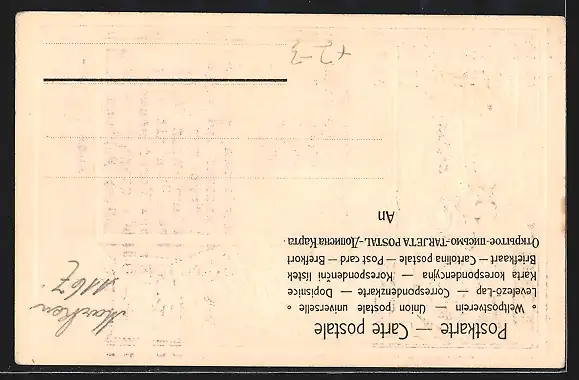 Postkarte — Carte postale
° Weltpostverein — Union postale universelle °
Levelezö-Lap — Correspondenzkarte — Dopisnice
Karta korespondencyjna — Korespondenční lístek
Briefkaart — Cartolina postale — Post card — Brefkort
Открытое-письмо-TARJETA POSTAL-Дописна Карта·
An
Märchen
1167
+2-3